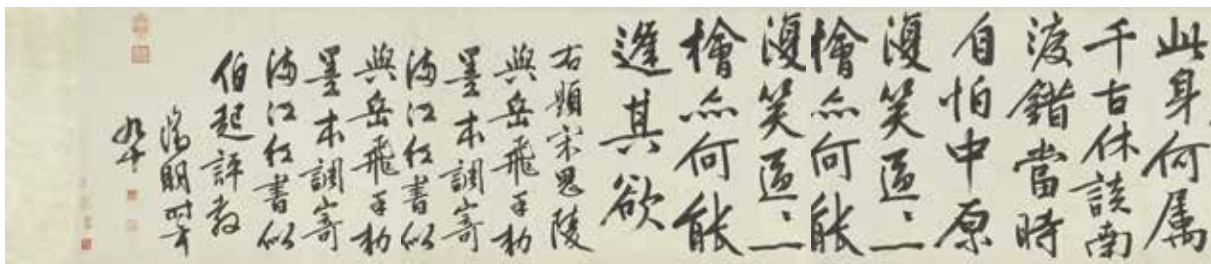 此身何属
千古休談南
渡錯當時
自怕中原
復笑區〻一
檜亦何能
復笑區〻一
檜亦何能
逢其欲
右題宋思陵
與岳飛手勑
墨本調寄
滿江紅書似
與岳飛手勑
墨本調寄
滿江紅書似
伯起評教
徵明時年
九十